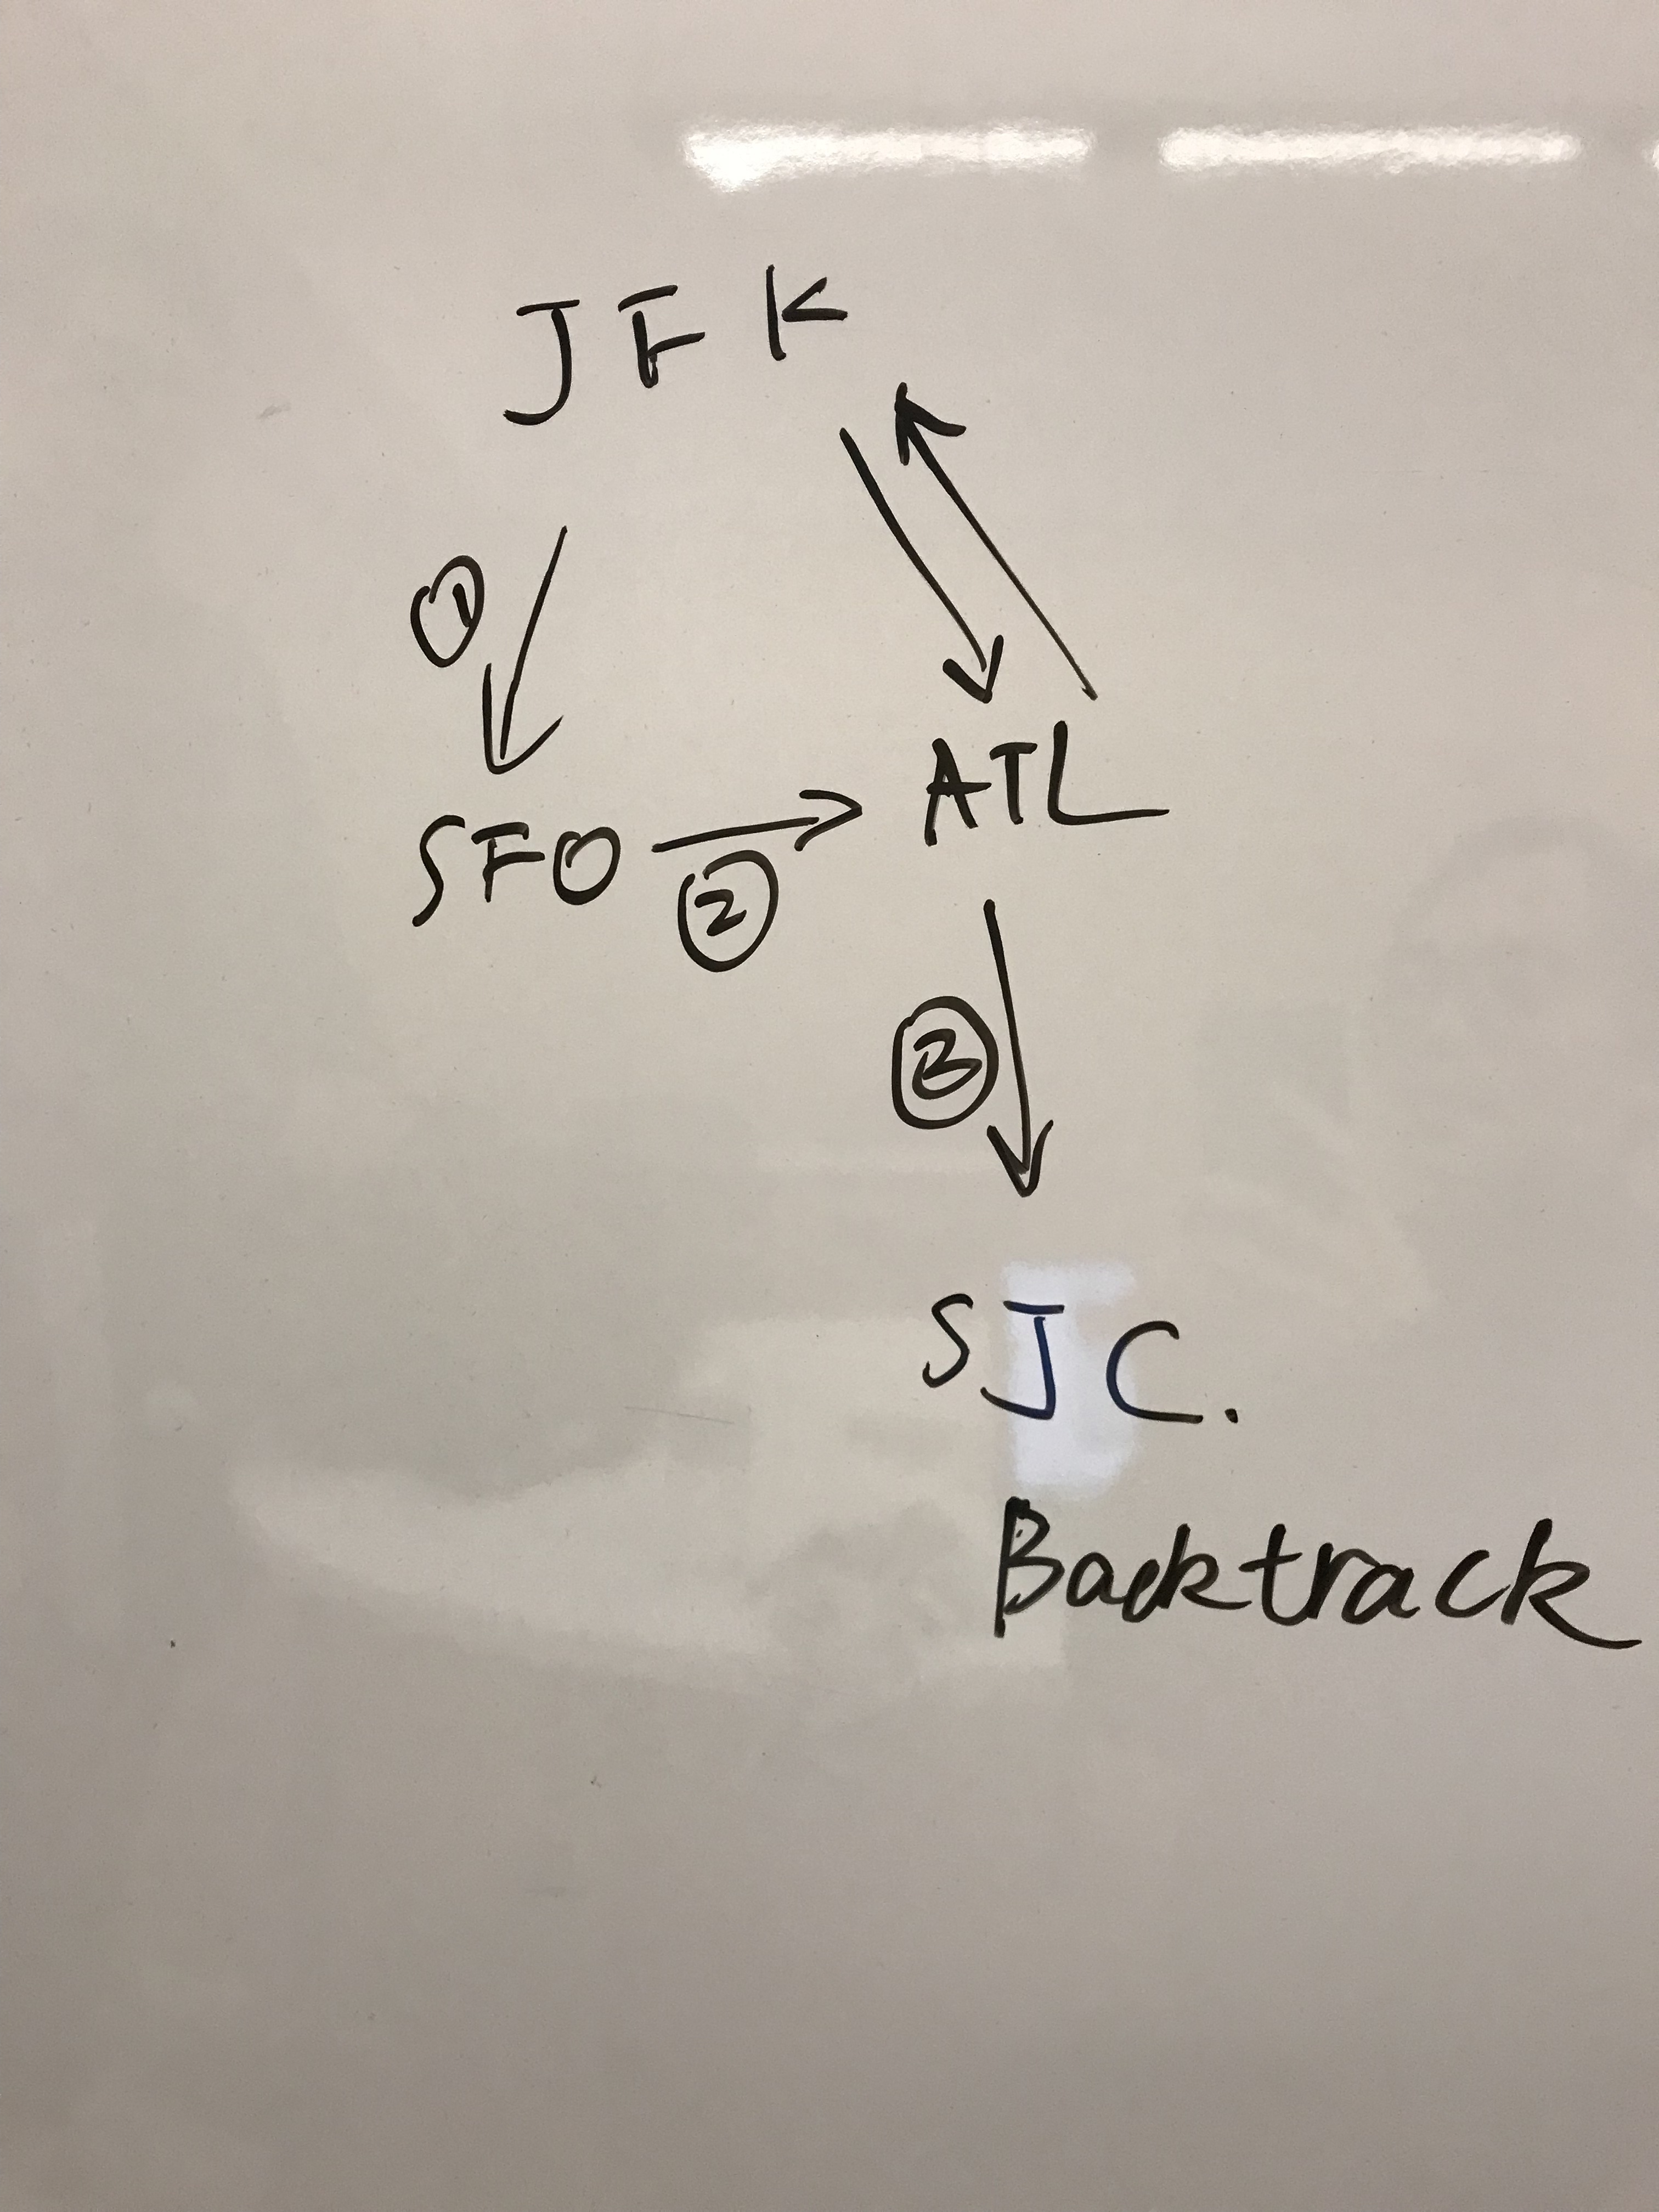 JFK
①
SFO
②
ATL
③
SJC.
Backtrack